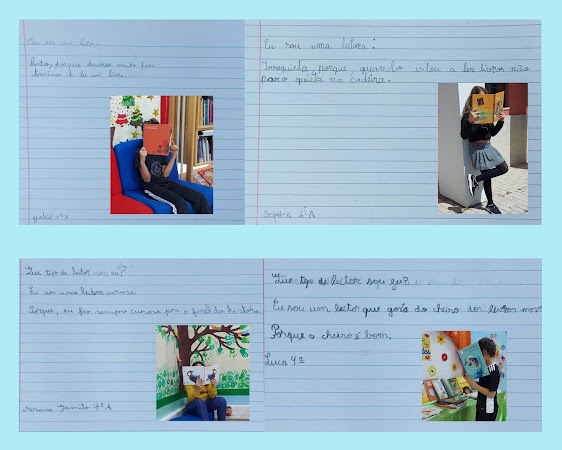 Eu sou um
porque demoro muito para
terminar de ler um livro.
4º A
Eu sou uma leitora:
Irrequieta, porque quando estou a ler livros não
paro quieta na cadeira.
Sophia 4º A
Que tipo de leitor sou eu?
Eu sou uma leitora curiosa
Porque, eu fico sempre curiosa para o final da história.
Mariana 4º A
Que tipo de leitor sou eu?
Eu sou um leitor que gosta do cheiro dos livros novos
Porque o cheiro é bom.
Luca 4º